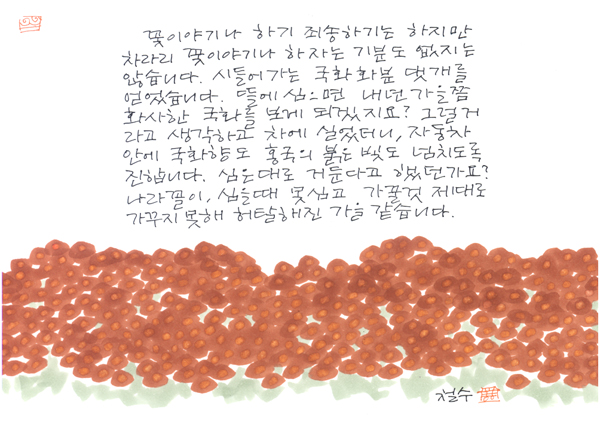 꽃이야기나 하기 죄송하기는 하지만
차라리 꽃이야기나 하자는 기분도 없지는
않습니다. 시들어가는 국화화분 몇개를
얻었습니다. 뜰에 심으면 내년가을쯤
화사한 국화를 보게 되겠지요? 그럴거
라고 생각하고 차에 실었더니, 자동차
안에 국화향도 홍국의 붉은 빛도 넘치도록
진합니다. 심은대로 거둔다고 했던가요?
나라꼴이, 심을때 못심고 가꿀것 제대로
가꾸지 못해 허탈해진 가을 같습니다.
철수